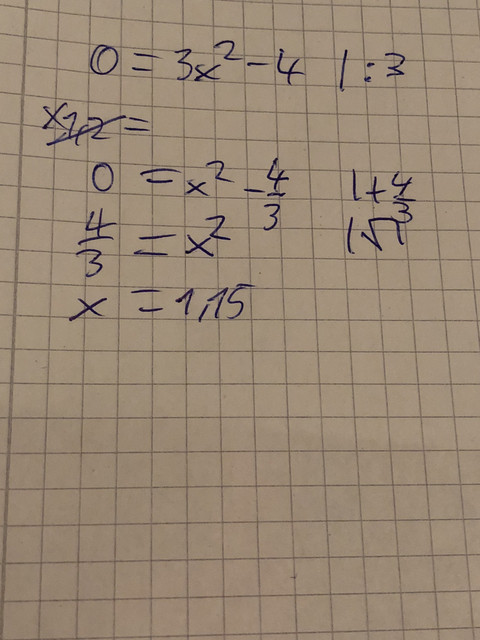 0 = 3x² - 4 | : 3
x1,2 =
0 = x² - 4/3 | + 4/3
4/3 = x² | √
x = 1,15